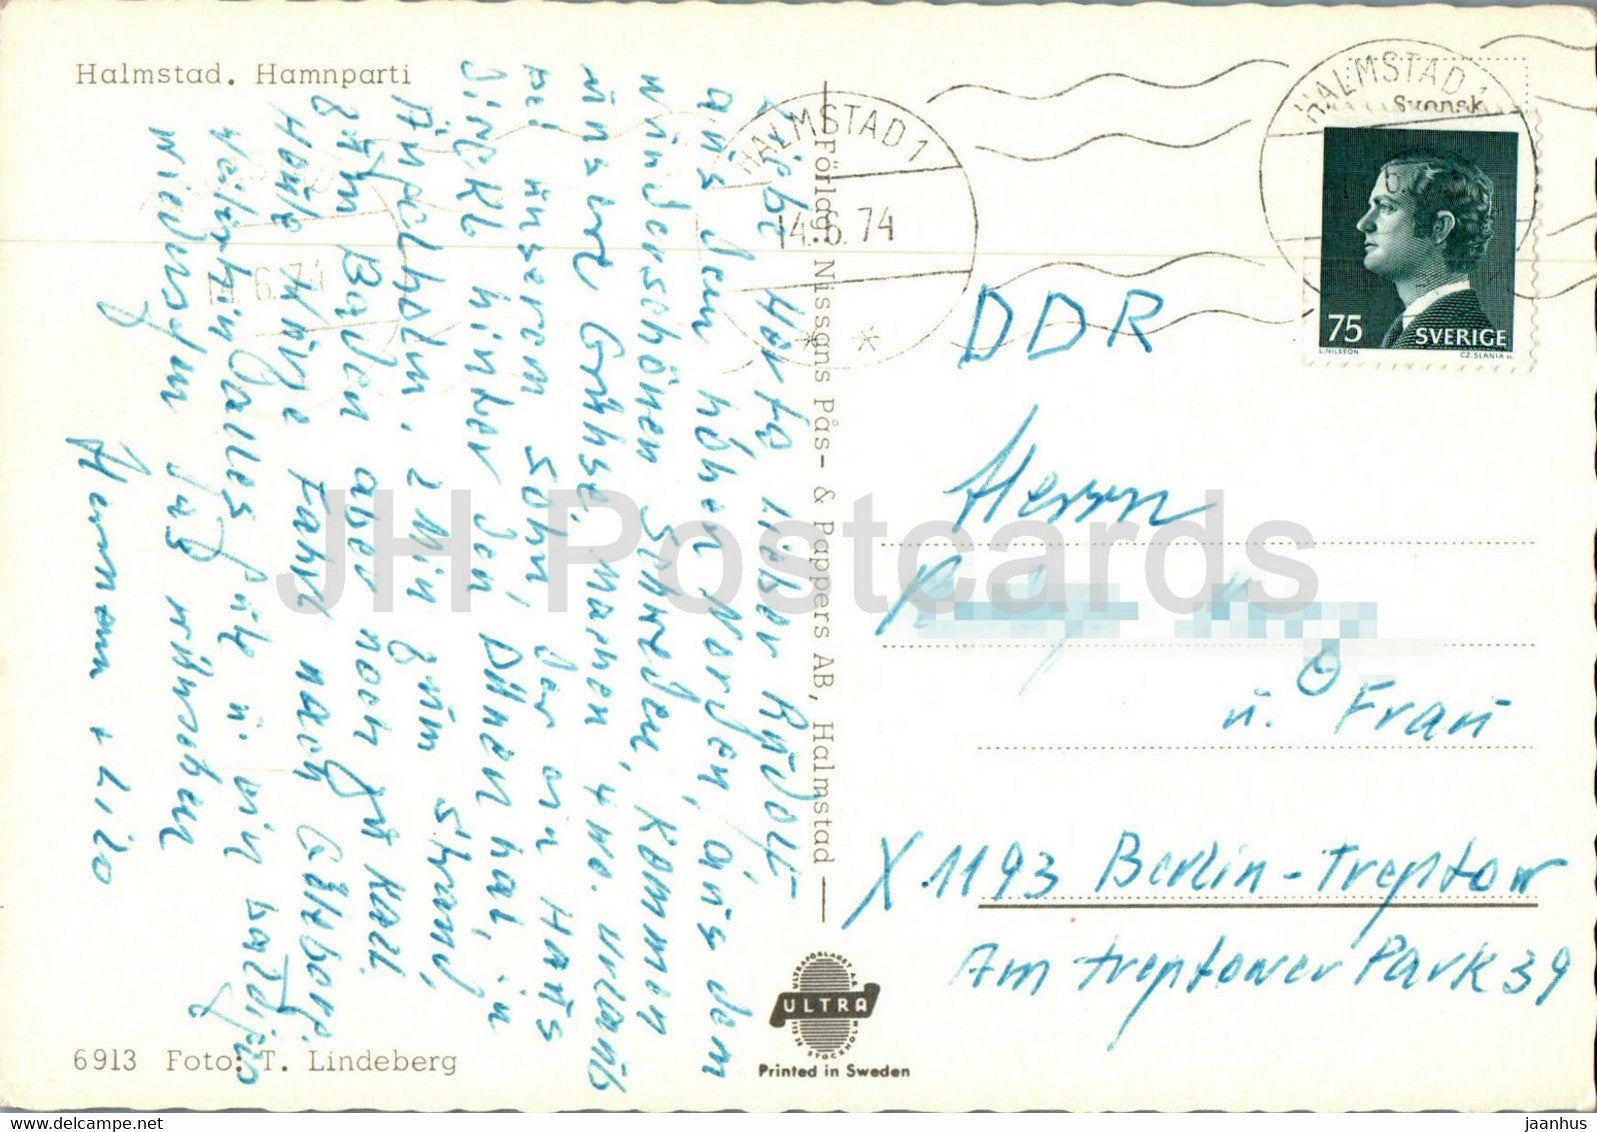 Halmstad. Hamnparti
Liebe Herta, lieber Rudolf
aus dem hohen Norden, aus dem
wunderschönen Schweden, kommen
unsere Grüsse. Machen 4 Wo. Urlaub
bei unserem Sohn, der ein Haus
direkt hinter den Dünen hat, in
Ängelholm, 2 Min zum Strand,
zum Baden aber noch zu kalt.
Heute kurze Fahrt nach Göteborg.
weiterhin alles Gute u. ein baldiges
wiedersehen das wünschen
Hermann + Lilo
6913 Foto: T. Lindeberg
Förlag: Nissens Pås- & Pappers AB, Halmstad
HALMSTAD 1
14.6.74
HALMSTAD 1
Svensk
75
SVERIGE
L.NILSSON CZ.SLANIA sc
DDR
Herrn
u. Frau
X 1193 Berlin-Treptow
Am Treptower Park 39
ULTRAFÖRLAGET A.B.
ULTRA
STOCKHOLM
Printed in Sweden
JH Postcards
www.delcampe.net
jaanhus